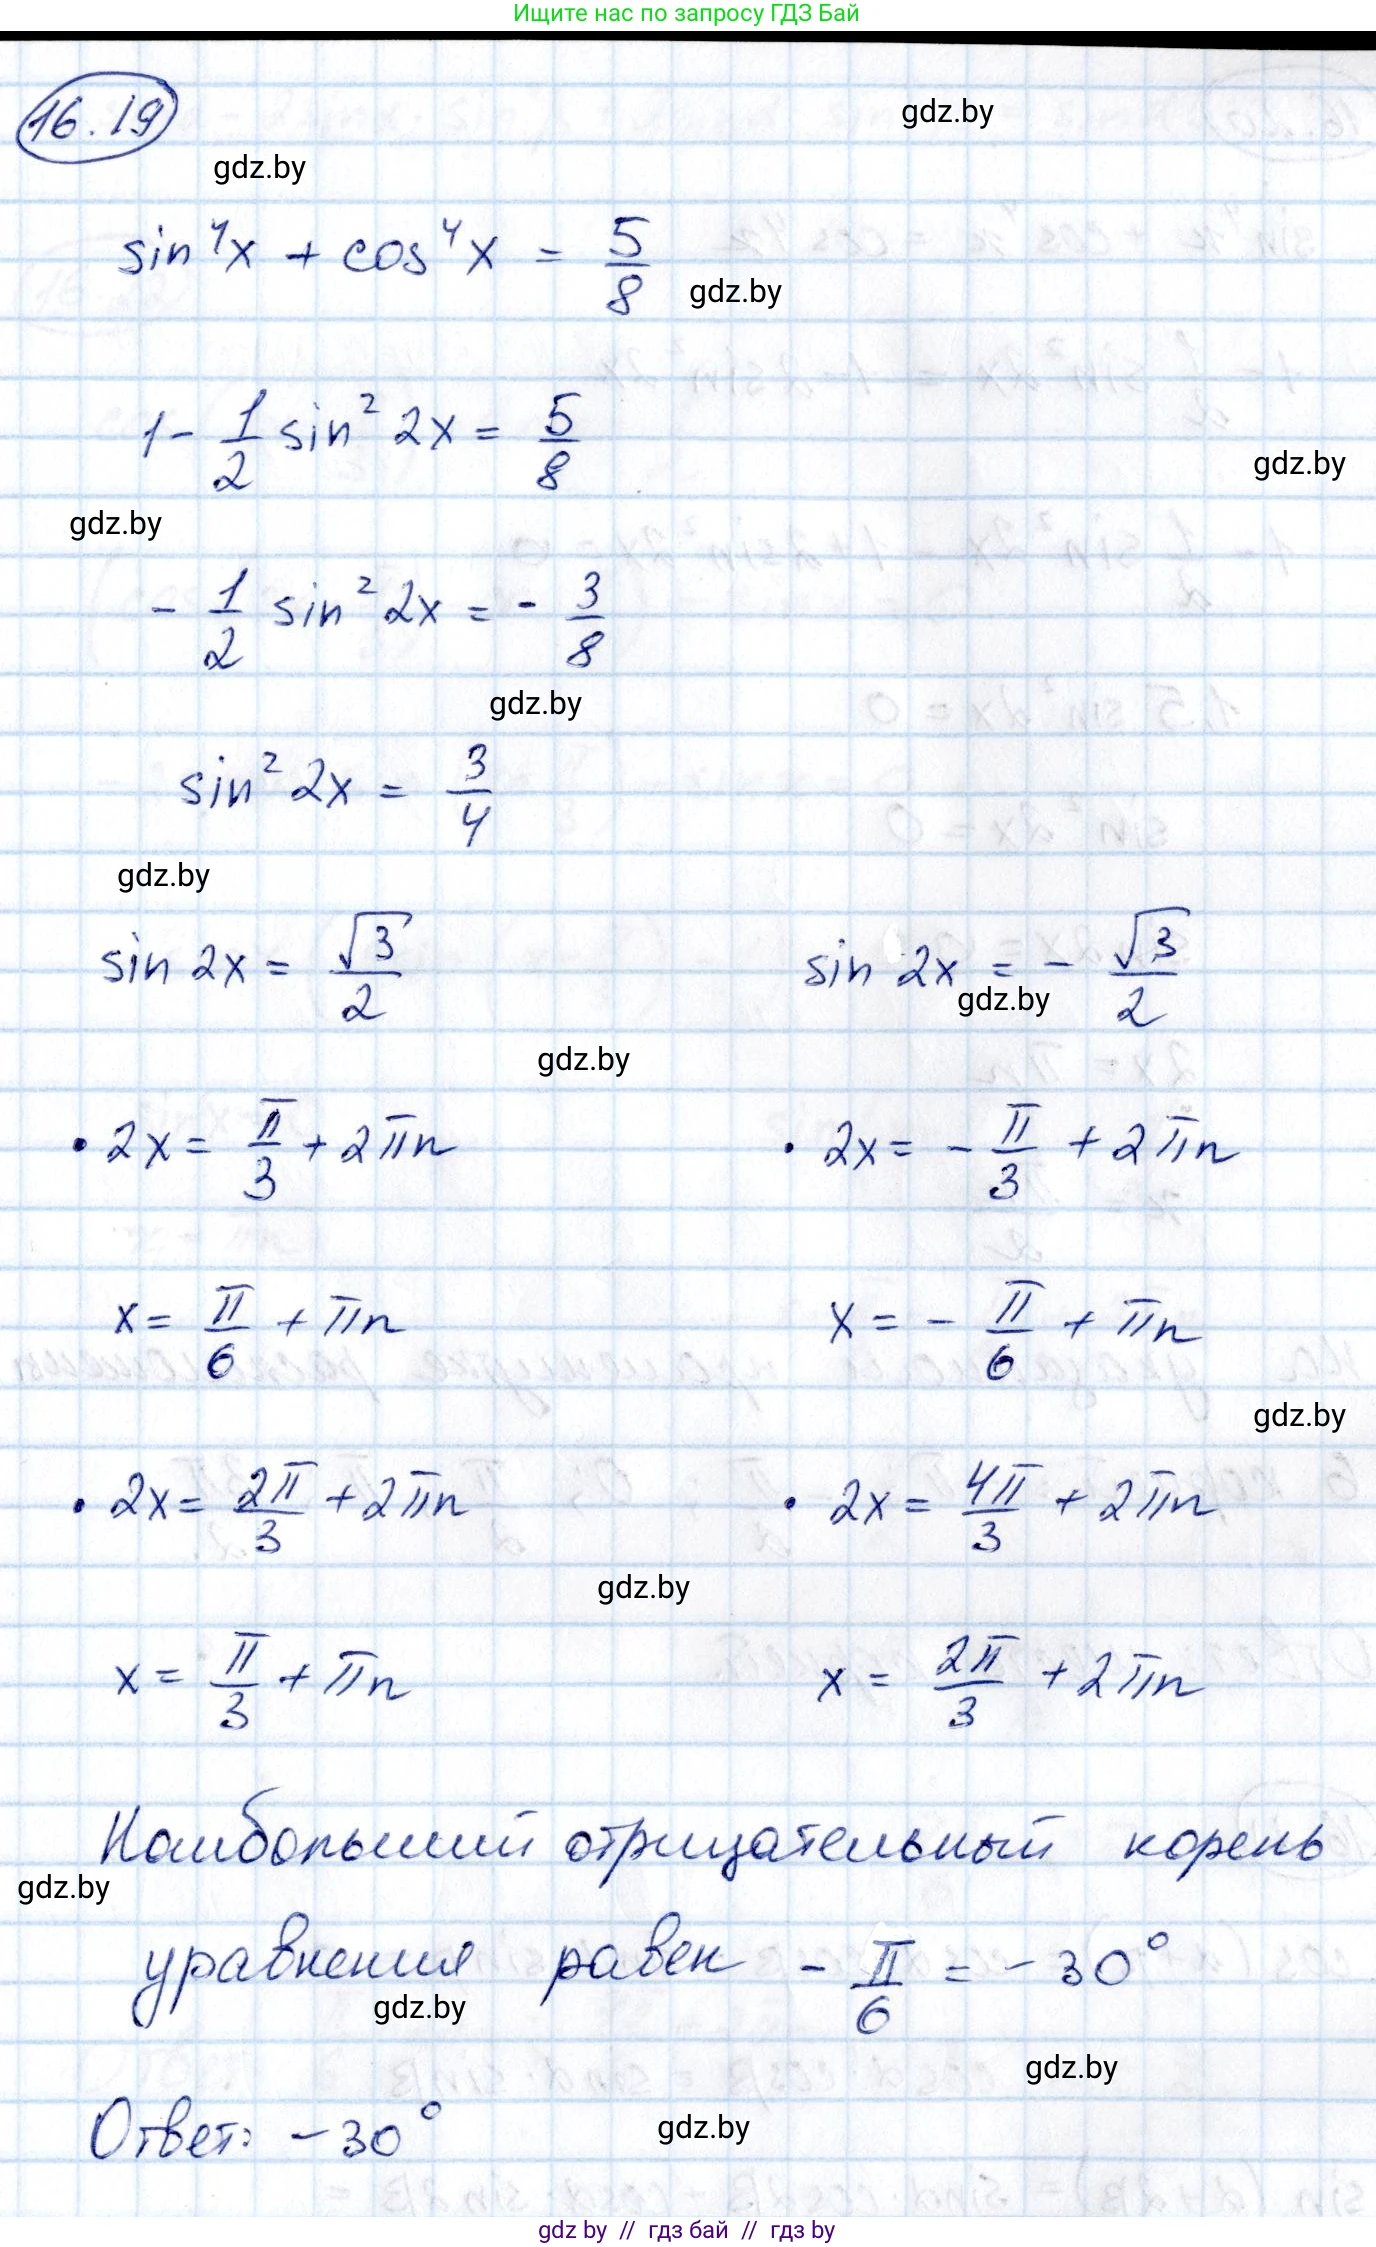 Ищите нас по запросу ГДЗ Бай
16.19
gdz.by
gdz.by
sin⁴x + cos⁴x = 5/8
gdz.by
1 - 1/2 sin² 2x = 5/8
gdz.by
gdz.by
- 1/2 sin² 2x = - 3/8
gdz.by
sin² 2x = 3/4
gdz.by
sin 2x = √3/2 sin 2x = - √3/2
gdz.by
gdz.by
• 2x = π/3 + 2πn • 2x = - π/3 + 2πn
x = π/6 + πn x = - π/6 + πn
gdz.by
• 2x = 2π/3 + 2πn • 2x = 4π/3 + 2πn
gdz.by
x = π/3 + πn x = 2π/3 + 2πn
Наибольший отрицательный корень
gdz.by
уравнения равен - π/6 = - 30°
gdz.by
gdz.by
Ответ: - 30°
gdz.by
gdz by // гдз бай // гдз by